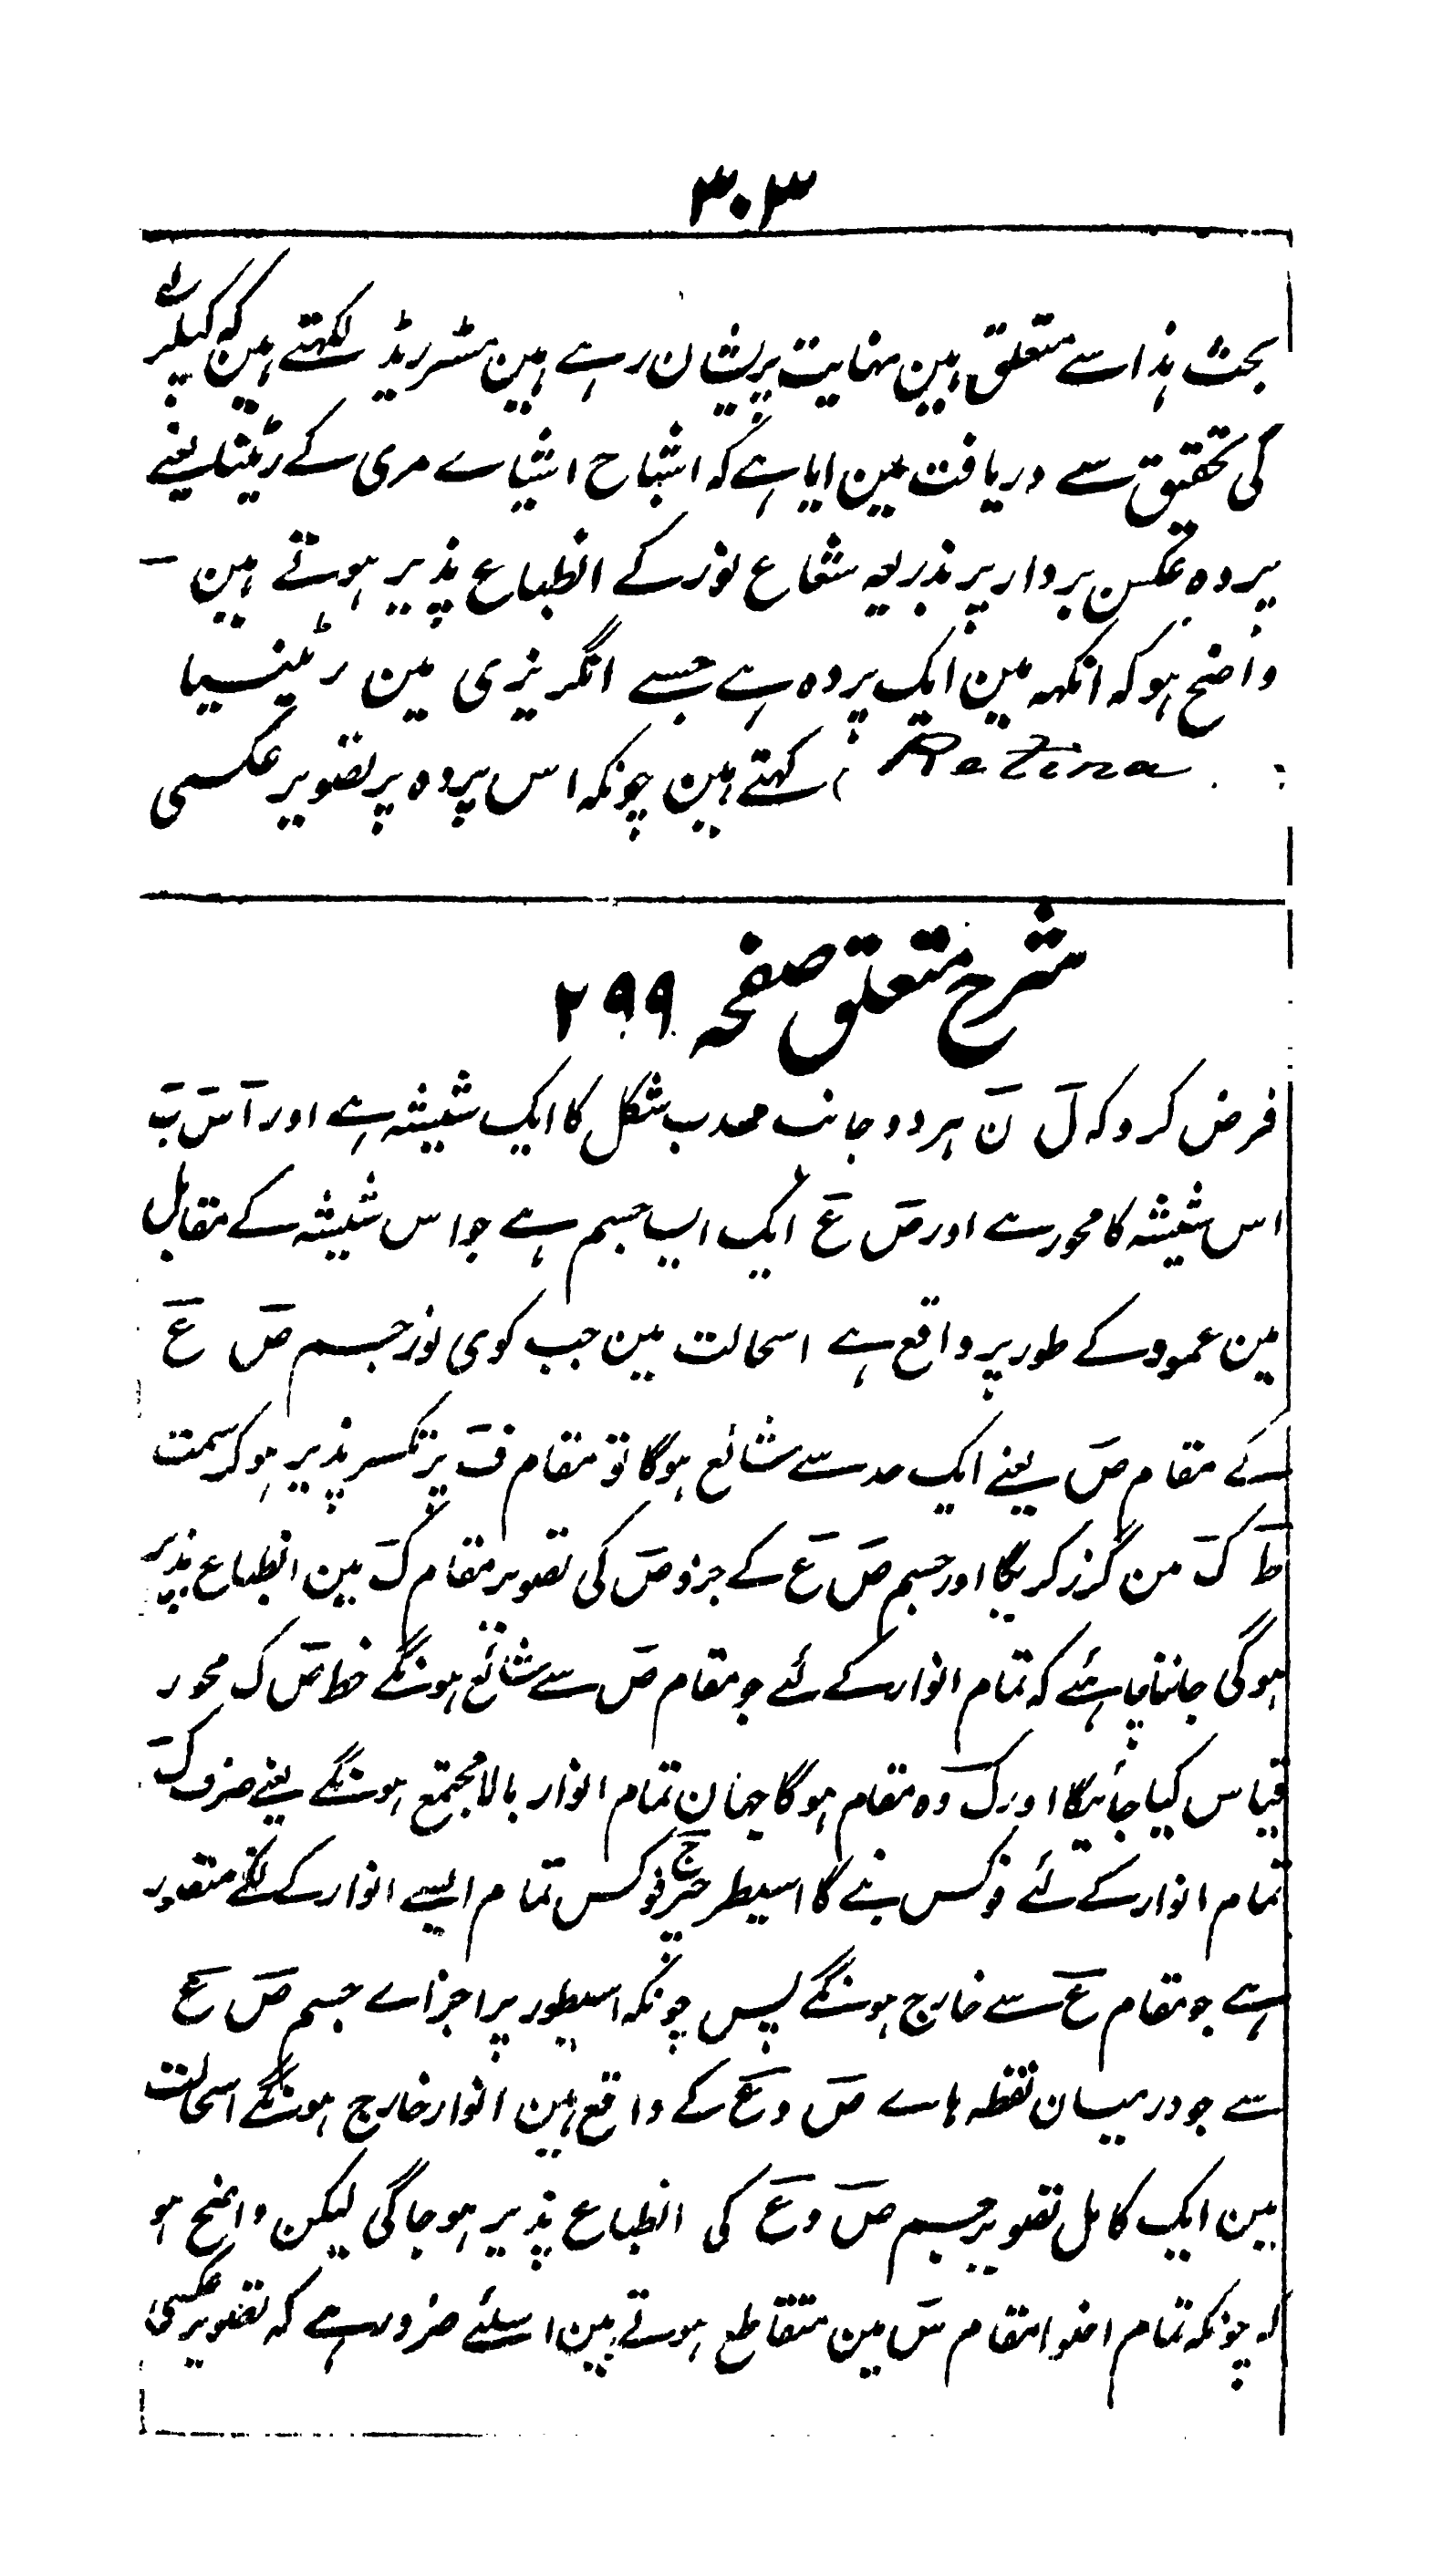 ۳۰۳
بحث ہذا سے متعلق ہین نہایت پریشان رہے ہین مسٹر ریڈ لکھتے ہین کہ کیپلر
کی تحقیق سے دریافت مین ایا ہے کہ اشباح اشیاے مرئی کے رٹینا یعنے
پردہ عکس بردار پر بذریعہ شعاع نور کے انطباع پذیر ہوتے ہین ۔
واضح ہو کہ انکہہ مین ایک پردہ ہے جسے انگریزی مین رٹینیا
Retina کہتے ہین چونکہ اس پردہ پر تصویر عکسی
شرح متعلق صفحہ ۲۹۹
فرض کرو کہ لَ نَ ہر دو جانب محدب شکل کا ایک شیشہ ہے اور آ سَ بَ
اس شیشہ کا محور ہے اور صَ عَ ایک ایسا جسم ہے جو اس شیشہ کے مقابل
مین عمود کے طور پر واقع ہے اسحالت مین جب کوی نور جسم صَ عَ
کے مقام صَ یعنے ایک حد سے شائع ہوگا تو مقام فَ پر تکسر پذیر ہوکر سمت
طَ کَ من گزر کریگا اور جسم صَ عَ کے جزو صَ کی تصویر مقام کَ مین انطباع پذیر
ہوگی جاننا چاہئے کہ تمام انوار کے لئے جو مقام صَ سے شائع ہونگے خط صَ کَ محور
قیاس کیا جائیگا اور کَ وہ مقام ہوگا جہان تمام انوار بالا مجتمع ہونگے یعنے صرف کَ
تمام انوار کے لئے فوکس بنے گا اسیطرح جَ فوکس تمام ایسے انوار کے لئے متصور
ہے جو مقام عَ سے خارج ہونگے پس چونکہ اسیطور پر اجزاے جسم صَ عَ
سے جو درمیان نقطہ ہاے صَ و عَ کے واقع ہین انوار خارج ہونگے اسحالت
مین ایک کامل تصویر جسم صَ و عَ کی انطباع پذیر ہوجاگی لیکن واضح ہو
کہ چونکہ تمام اضوا مقام سَ مین متقاطع ہوتے ہین اسلئے ضرور ہے کہ تصویر عکسی